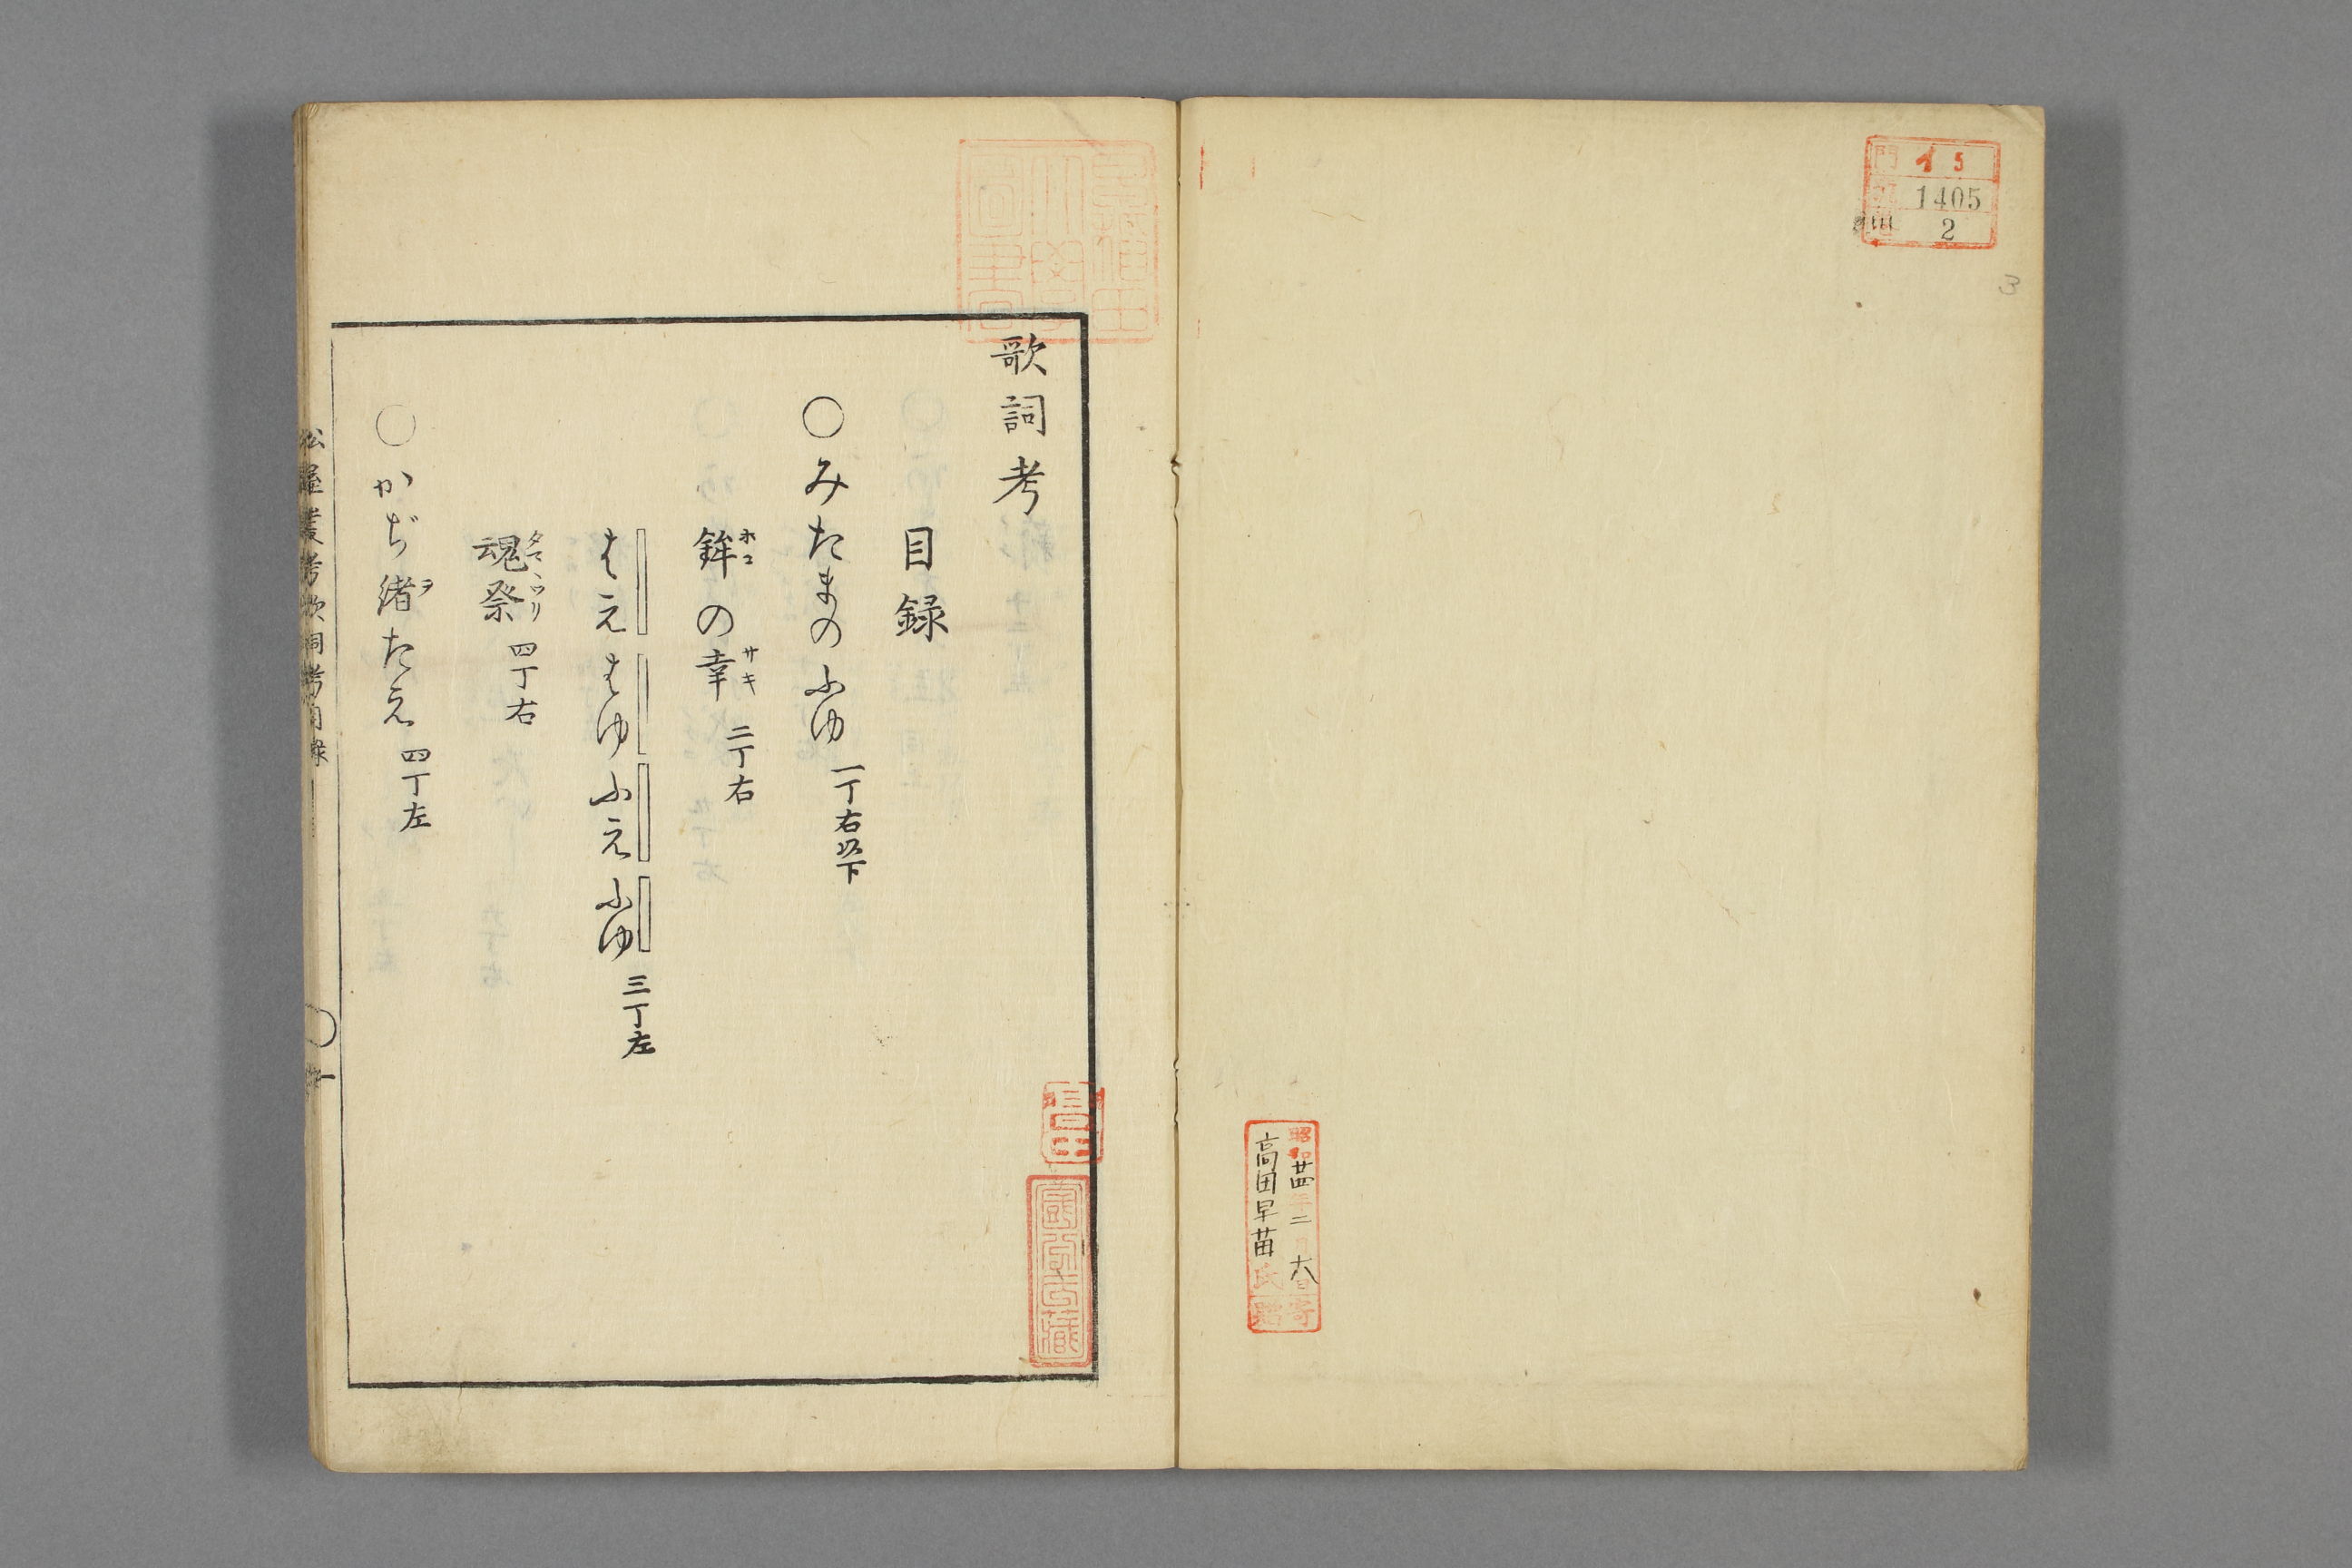 門 イ 5
1405
2
3
昭和廿四年二月六日寄
高田早苗氏贈
歌詞考
目録
○みたまのふゆ 一丁右以下
鉾の幸 二丁右
ホコ サキ
はえ はゆ ふえ ふゆ 三丁左
魂祭 四丁右
タママツリ
○かぢ緒たえ 四丁左
ヲ
松屋叢考歌詞考目録